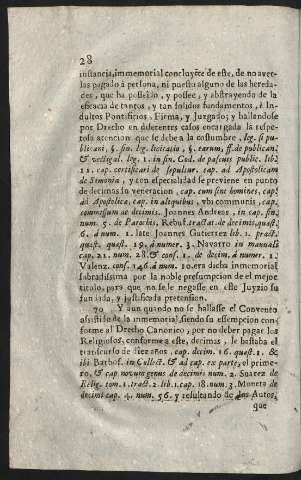 28
instancia, immemorial concluyẽte de este, de no aver-
las pagado à persona, ni puesto alguno de las hereda-
des, que ha posseìdo, y possee, y abstrayendo de la
eficacia de tantos, y tan solidos fundamentos, è In-
dultos Pontificios, Firma, y Juzgado; y hallandose
por Drecho en diferentes casos encargada la respe-
tosa atencion, que se debe à la costumbre, leg. si pu-
blicani, §. fin. leg. licitatio, §. earum, ff. de publican.
& vectigal. leg. 1. in fin. Cod. de pascuis public. lib.
11. cap. certificari de sepultur. cap. ad Apostolicam
de Simonia, y con especialidad se previene en punto
de decimas su veneracion, cap. cum sint homines, cap.
ad Apostolica, cap. in aliquibus, vbi communis, cap.
commissum de decimis. Joannes Andreas, in cap. fin.
num. 5. de Parochis, Rebuf. tractat. de decimis, quæst.
6. à num. 1. late Joannes Gutierrez lib. 1. pract.
quæst. quæst. 19. à numer. 3. Navarro in manuali
cap. 21. num. 28. & cons. 1. de decim. à numer. 1.
Valenz. cons. 146. à num. 10. era dicha inmemorial
sobradissima por la noble presumpcion de el mejor
titulo, para que no se le negasse en este Juyzio su
fundada, y justificada pretension.
70 Y aun quando no se hallasse el Convento
assistido de la inmemorial, siendo su essempcion con-
forme al Drecho Canonico, por no deber pagar los
Religiosos, conforme a este, decimas, le bastaba el
transcurso de diez años, cap. decim. 16. quæst. 1. &
ibi Barbos. in Collect. & ad cap. ex parte, el prime-
ro, & cap. novum genus de decimis num. 2. Suarez de
Relig. tom. 1. tract. 2. lib. 1. cap. 18. num. 3. Moneta de
decimis cap. 4. num. 56. y resultando de los Autos,
que